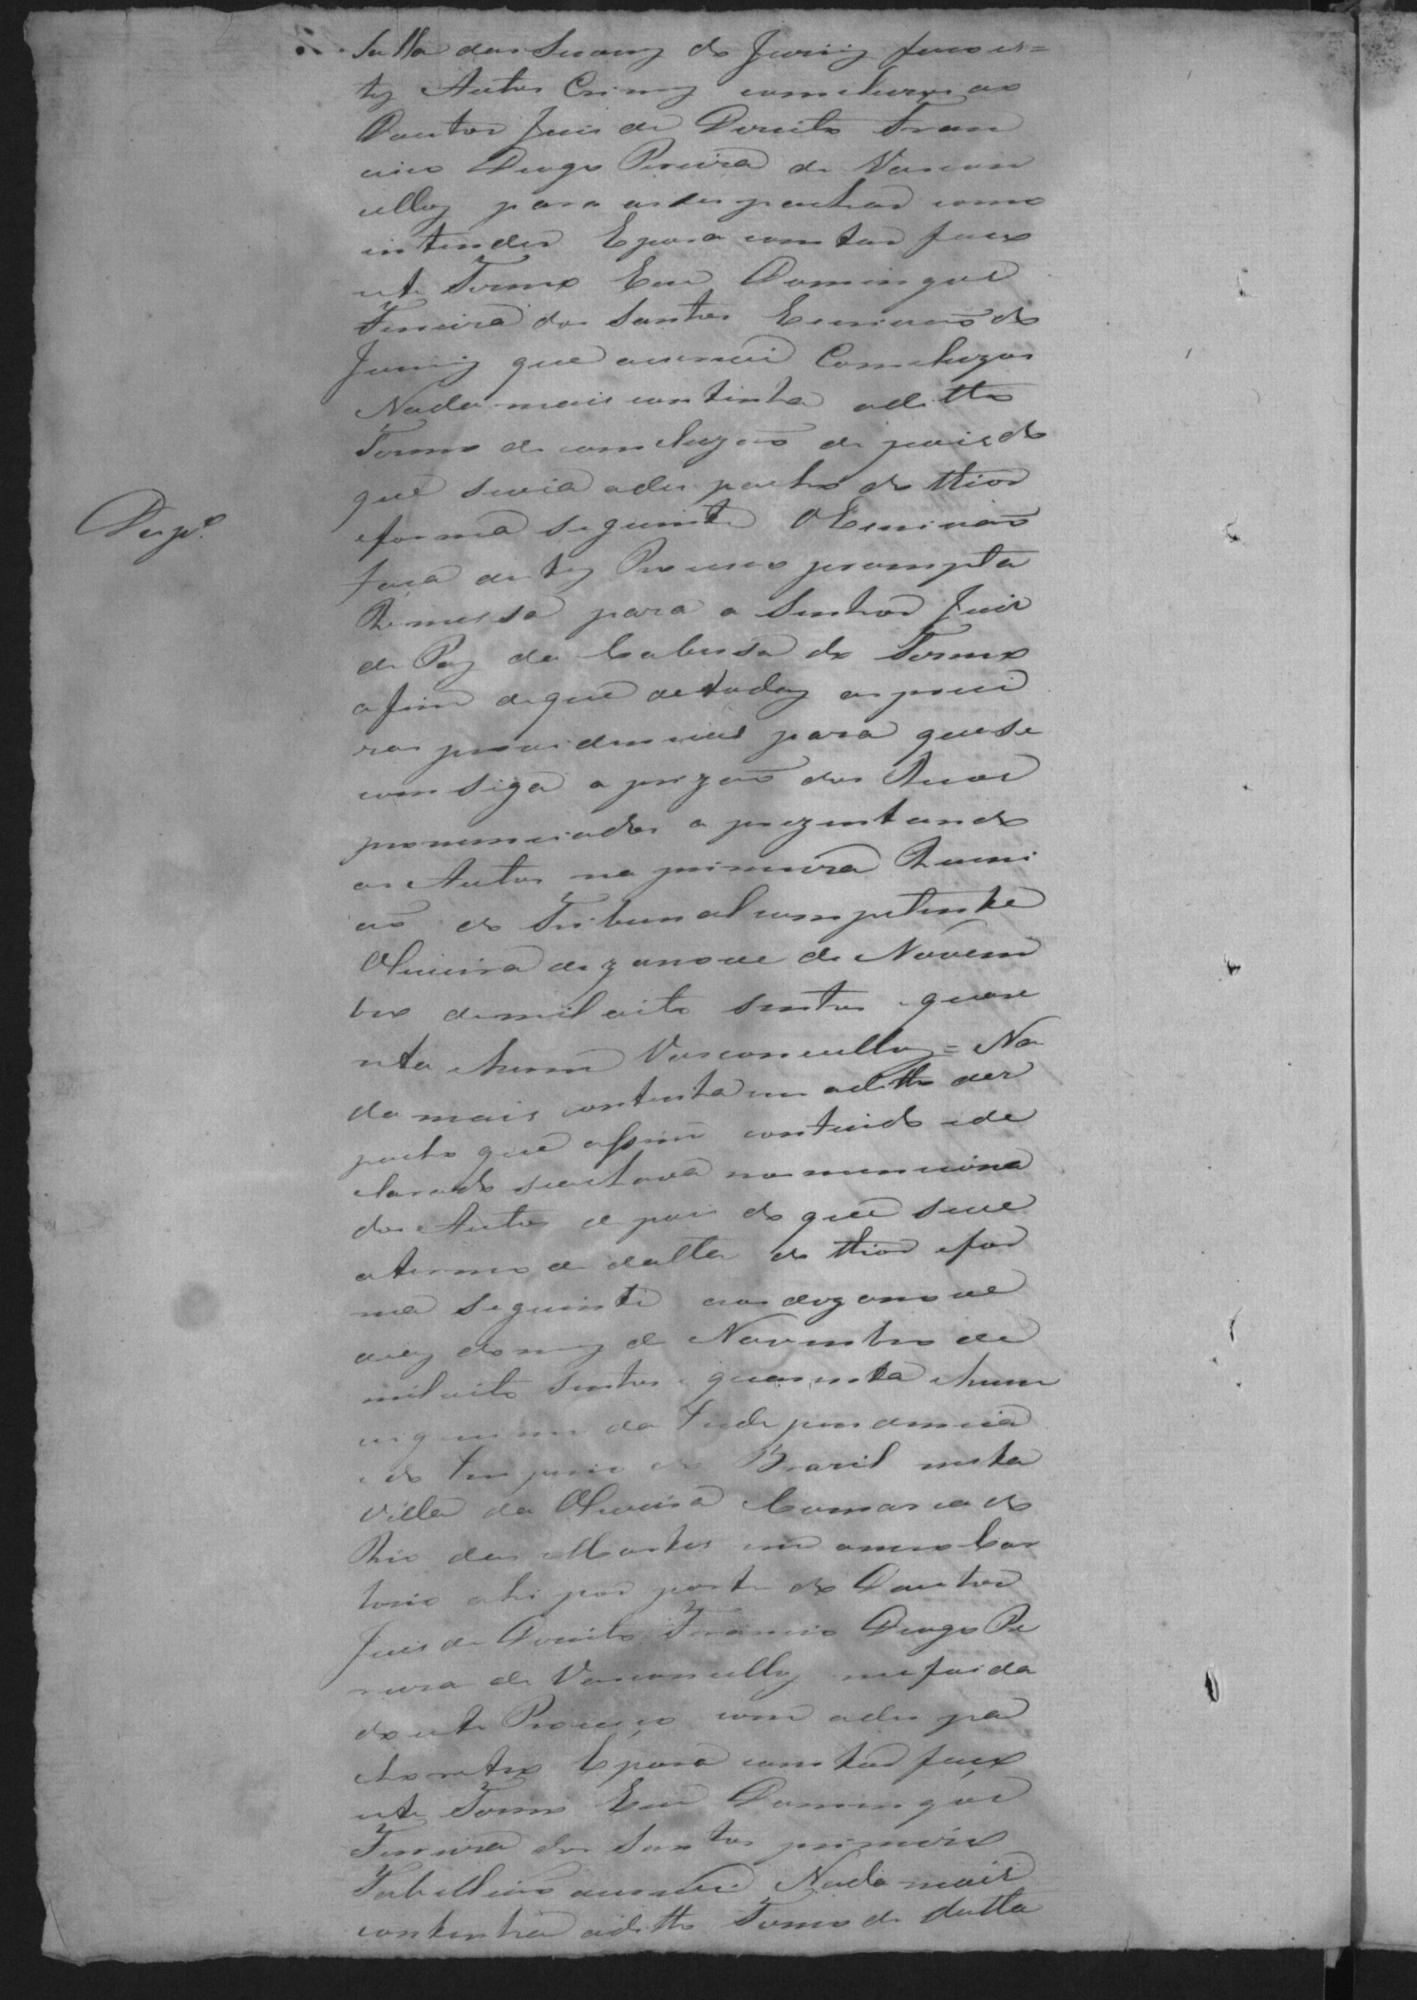 Salla das Secoens do Jury faco es=
tes Autos Crimes comcluzos ao
Doutor Juis de Direito Fran
cisco Diogo Pereira de Vascon
cellos para os despachar como
intender E para comstar faco
este Termo Eeu Domingos
Ferreira dos Santos Escrivaõ do
Jury que escrevi Comcluzos
Nada mais continha o ditto
Termo de comcluzaõ de pois do
que sevia o des pacho do thior
eforma seguinte O Escrivaõ
Despº.
faça destes Processo prompta
Remessa para o Senhor Juis
de Paz da Cabessa do Termo
afim deque de todas as preci
zas providencias para que se
comsiga a prizaõ dos Reos
pronunciados a prezentando
os Autos na primeira Reuni
aõ do Tribunal competente
Oliveira dezanove de Novem
bro demil oito sentos equare
nta ehum Vasconcellos = Na
da mais continha em oditto des
pacho que assim contiudo ede
clarado seachava nos menciona
dos Autos depois do que seve
o termo de datta do thior efor
ma seguinte aos dezanove
dias do mes de Novembro de
mil oito sentos equarenta ehum
da Independencia
edo Imperio do Brazil nesta
Villa da Oliveira Comarca do
Rio das Mortes em omeo Car
torio ahi por parte do Doutor
Juis de Direito Francisco Diogo Pe
reira de Vasconcellos me foi da
do este Processo com o des pa
cho retro E para comstar faco
este Termo Eeu Domingos
Ferreira dos Santos primeiro
Tabelliaõ escrevi Nada mais
continha oditto Termo de datta